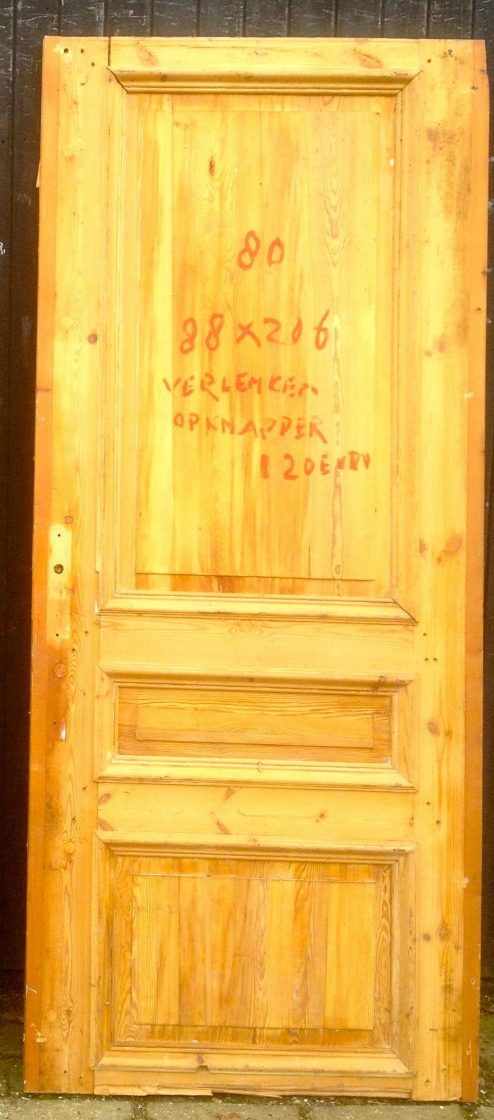 80
88x206
VERLEMKEN
OPKNAPPER
120EURO